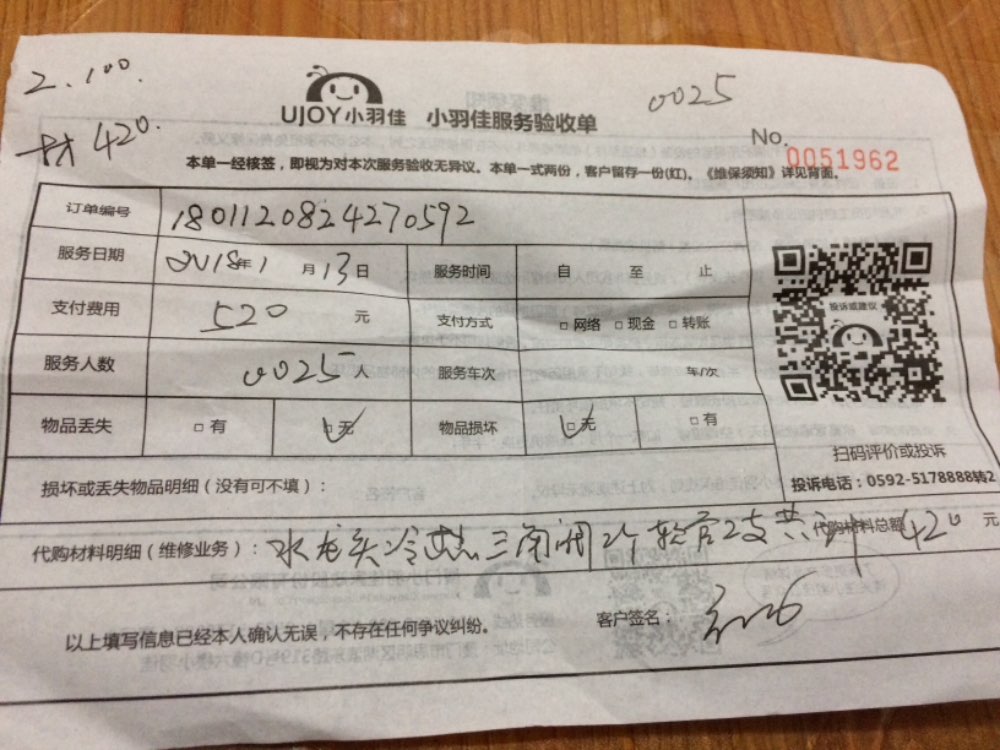 2.100.
0025
UJOY小羽佳 小羽佳服务验收单
材 420.
No. 0051962
本单一经核签，即视为对本次服务验收无异议。本单一式两份，客户留存一份(红)。《维保须知》详见背面。
订单编号 1801120824270592
服务日期 2018年1月13日 服务时间 自 至 止
支付费用 520 元 支付方式 □ 网络 □ 现金 □ 转账
服务人数 0025人 服务车次 年/次
物品丢失 □ 有 □ 无 物品损坏 □ 无 □ 有
投诉或建议
扫码评价或投诉
投诉电话：0592-5178888转2
损坏或丢失物品明细（没有可不填）：
代购材料明细（维修业务）：水龙头冷热三角阀2个软管2支共计 代购材料总额 420 元
客户签名：
以上填写信息已经本人确认无误，不存在任何争议纠纷。